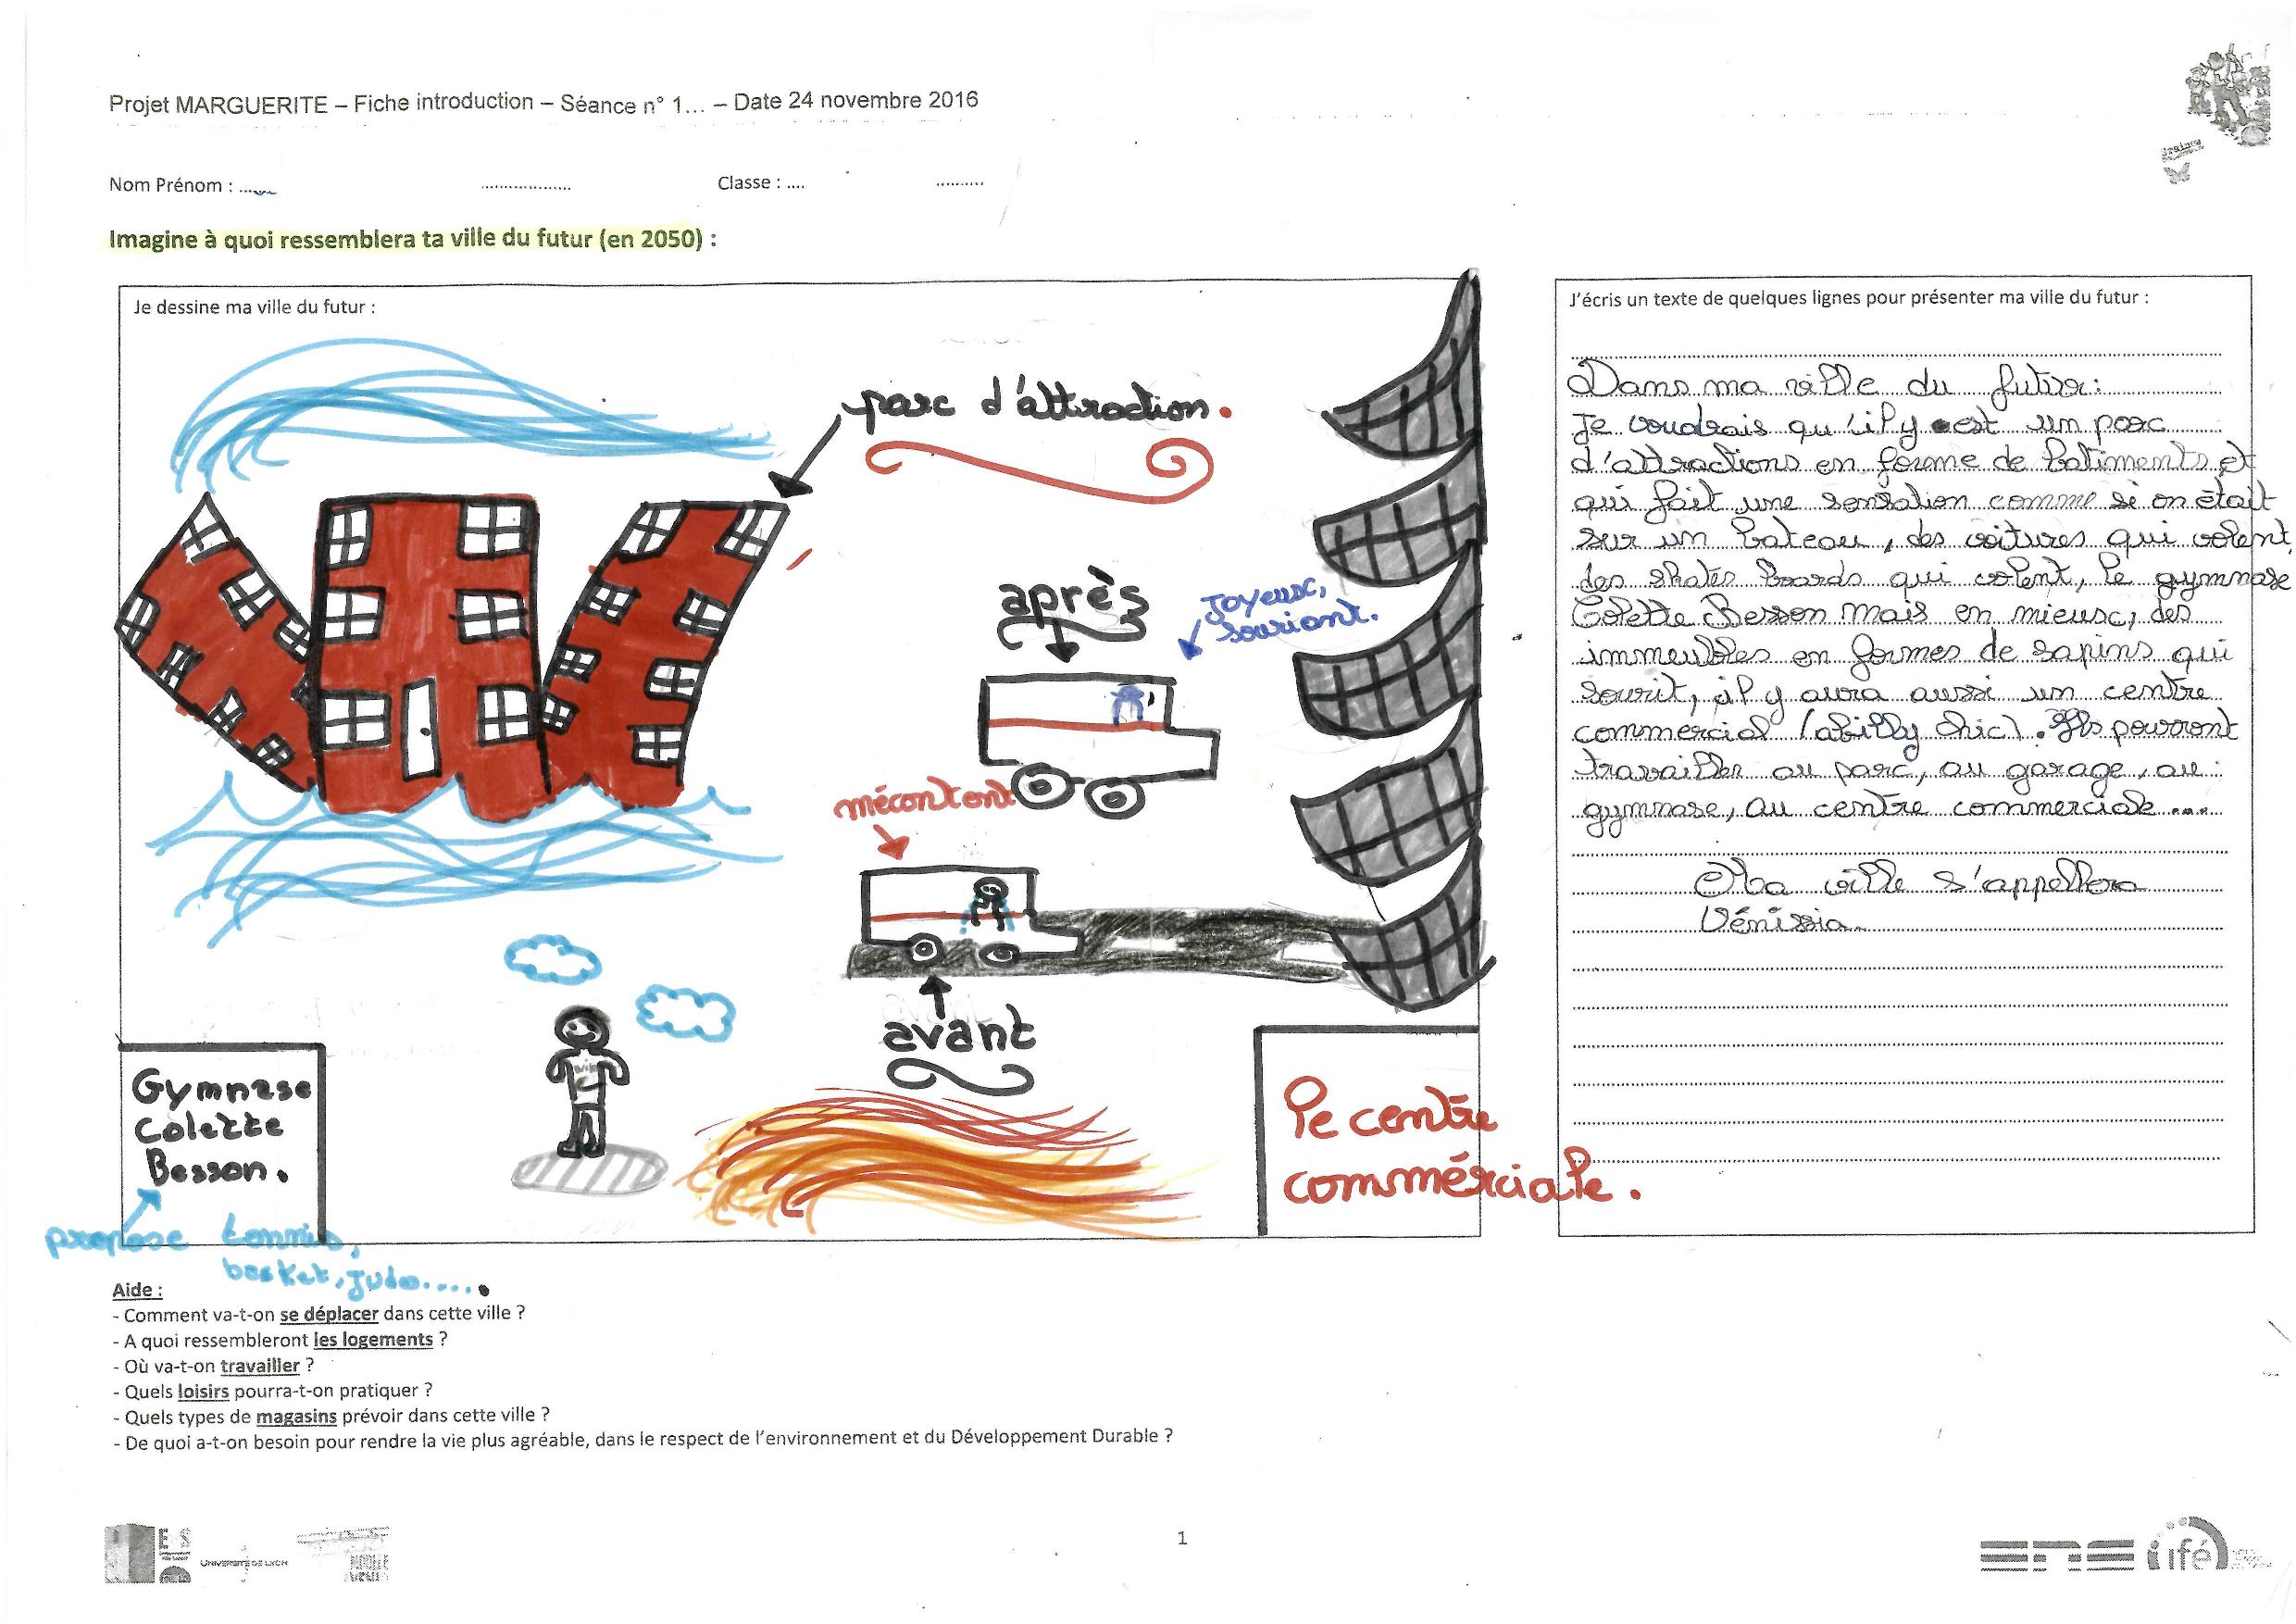 Projet MARGUERITE – Fiche introduction – Séance n° 1... – Date 24 novembre 2016
Nom Prénom : ..... ................... Classe : .... ..........
Imagine à quoi ressemblera ta ville du futur (en 2050) :
Je dessine ma ville du futur :
parc d'attraction.
après
joyeusc,
souriant.
mécontent
avant
Gymnase
Colette
Besson.
propose tennis,
basket, judo.....
le centre
commérciale.
J'écris un texte de quelques lignes pour présenter ma ville du futur :
Dans ma ville du futur:
je voudrais qu'il y est um parc
d'attractions en forme de batiments et
qui fait une sensation comme si on était
sur un bateau, des voitures qui volent,
des skates boards qui volent, le gymnase
Colette Besson mais en mieusc, des
immeubles en formes de sapins qui
sourit, il y aura aussi un centre
commercial (abilly chic). Ils pourront
travailler au parc, au garage, au
gymnase, au centre commerciale...
Ma ville s'appellera
Vénissia.
Aide :
- Comment va-t-on se déplacer dans cette ville ?
- A quoi ressembleront les logements ?
- Où va-t-on travailler ?
- Quels loisirs pourra-t-on pratiquer ?
- Quels types de magasins prévoir dans cette ville ?
- De quoi a-t-on besoin pour rendre la vie plus agréable, dans le respect de l'environnement et du Développement Durable ?
UNIVERSITÉ DE LYON
1
ENS
ifé